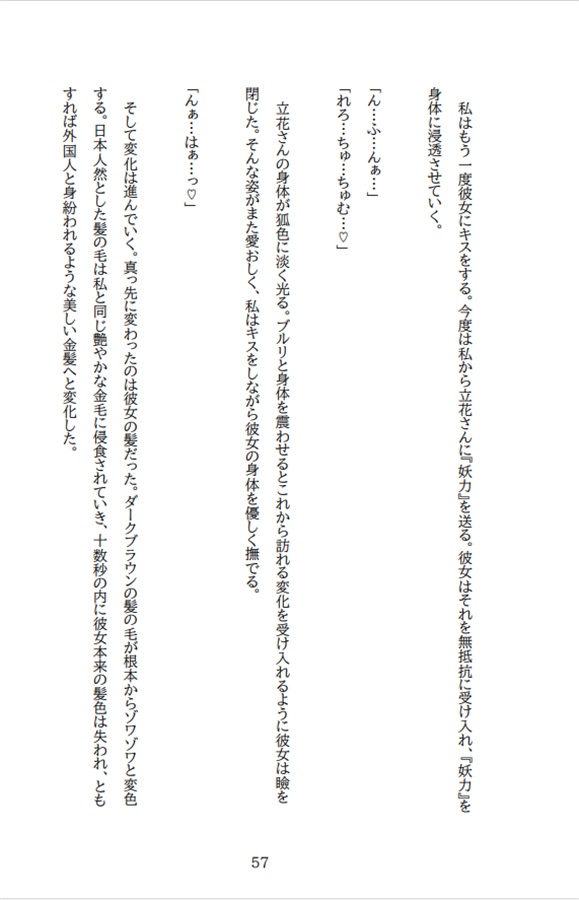 私はもう一度彼女にキスをする。今度は私から立花さんに『妖力』を送る。彼女はそれを無抵抗に受け入れ、『妖力』を
身体に浸透させていく。
「ん…ふ…んぁ…」
「れろ…ちゅ…ちゅむ…♡」
立花さんの身体が狐色に淡く光る。ブルリと身体を震わせるとこれから訪れる変化を受け入れるように彼女は瞼を
閉じた。そんな姿がまた愛おしく、私はキスをしながら彼女の身体を優しく撫でる。
「んぁ…はぁ…っ♡」
そして変化は進んでいく。真っ先に変わったのは彼女の髪だった。ダークブラウンの髪の毛が根本からゾワゾワと変色
する。日本人然とした髪の毛は私と同じ艶やかな金毛に侵食されていき、十数秒の内に彼女本来の髪色は失われ、とも
すれば外国人と身紛われるような美しい金髪へと変化した。
57